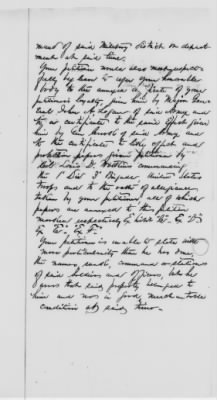 mand of said Military District or depart-
ment at said time.
Your petitioner would also most respect-
fully beg leave to refer your honorable
body to the annexed certificate of your
petitioners loyalty given him by Major Genl
John A. of said Army and
to a certificate to the same effect given
him by Genl of said Army and
to the certificate to like effect and
protection papers given petitioner by
commanding
the 1st Div 3d Brigade United States
troops and to the oath of allegiance
taken by your petitioner all of which
papers are annexed to this petition
marked respectively Ex
Ex "E" Ex F"
Your petitioner is unable to state with
more particularity than he has done
the names, rank, command or stations
of said soldiers and officers, but he
avers that said property belonged to
him and was in good, merchantable
condition at said time.